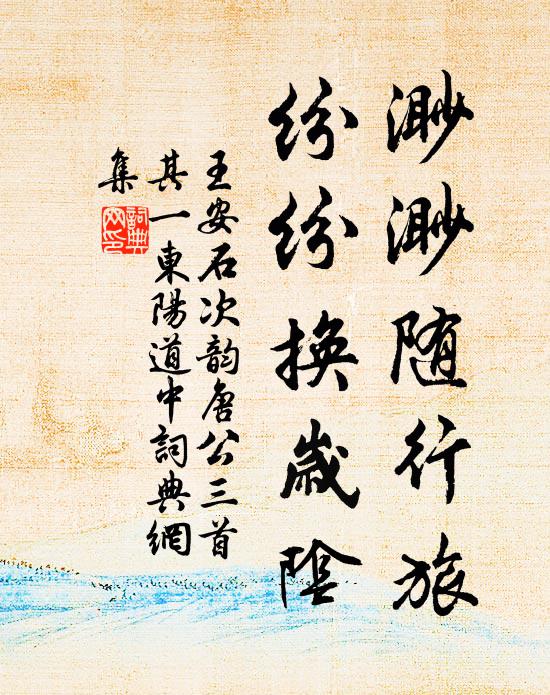 渺渺随行旅
紛紛換歲陰
王安石次韵唐公三首
其一東陽道中詞典網
集
詞典
网印